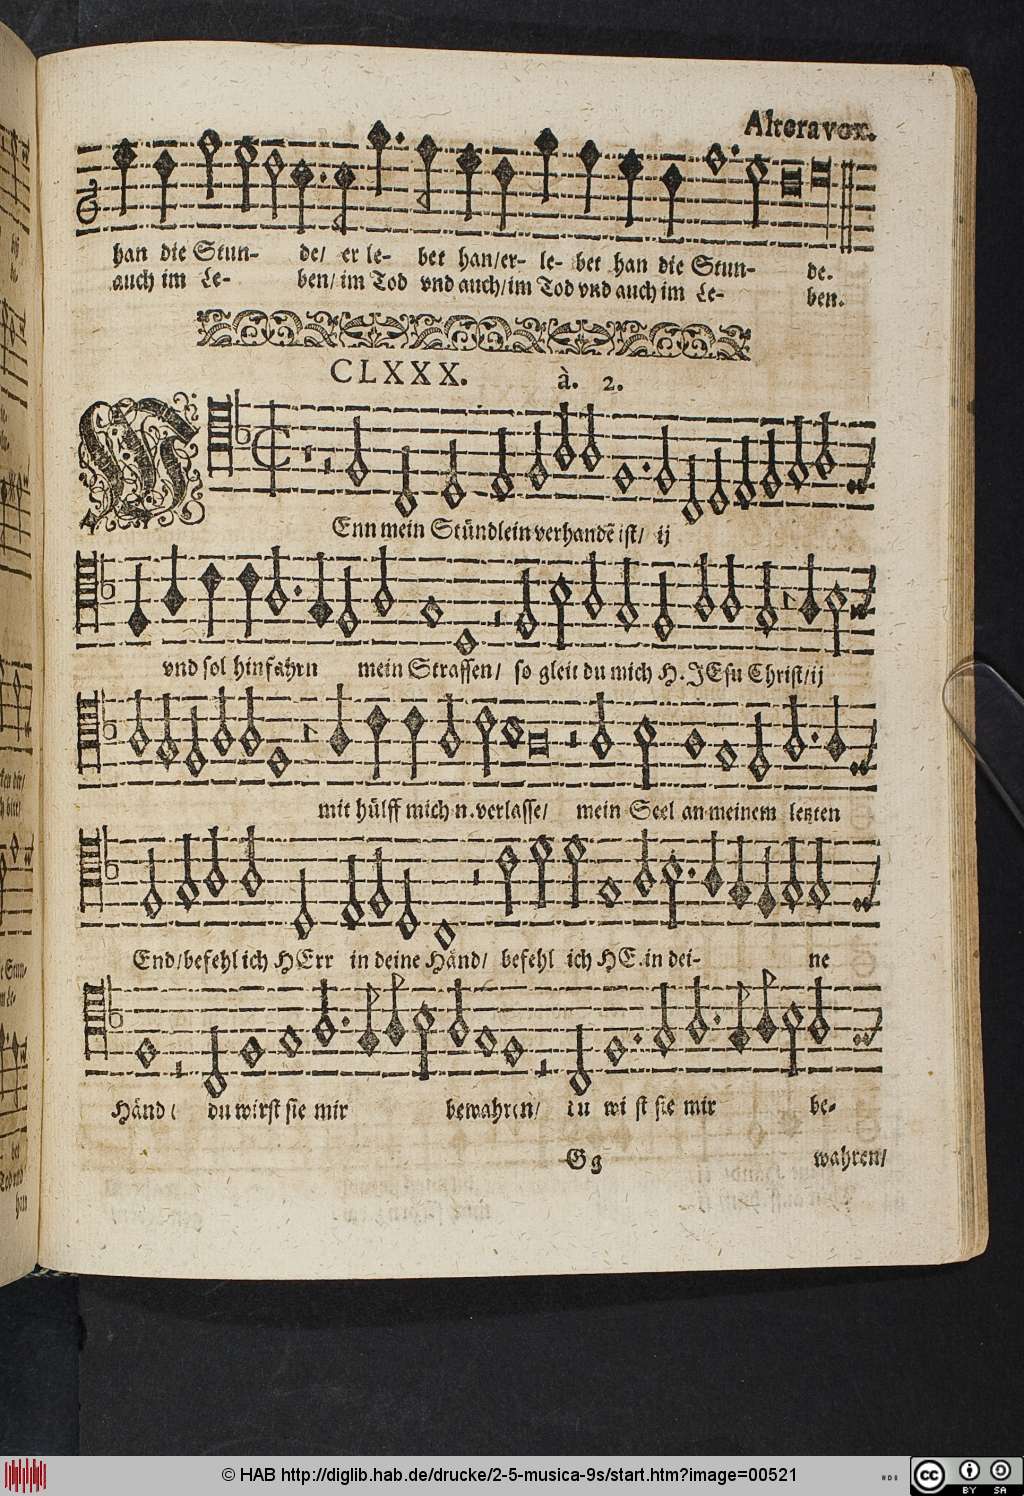 Altera vox.
han die Stun- de/ er le- bet han/er- le- bet han die Stun- de.
auch im Le- ben/ im Tod vnd auch/im Tod vnd auch im Le- ben.
CLXXX. à. 2.
WEnn mein Stündlein verhandẽ ist/ ij
vnd sol hinfahrn mein Strassen/ so gleit du mich H. JEsu Christ/ij
mit hülff mich n. verlasse/ mein Seel an meinem letzten
End/befehl ich HErr in deine Händ/ befehl ich HE.in dei- ne
Händ/ du wirst sie mir bewahren/ du wi st sie mir be-
Gg wahren/
© HAB http://diglib.hab.de/drucke/2-5-musica-9s/start.htm?image=00521
cc BY SA